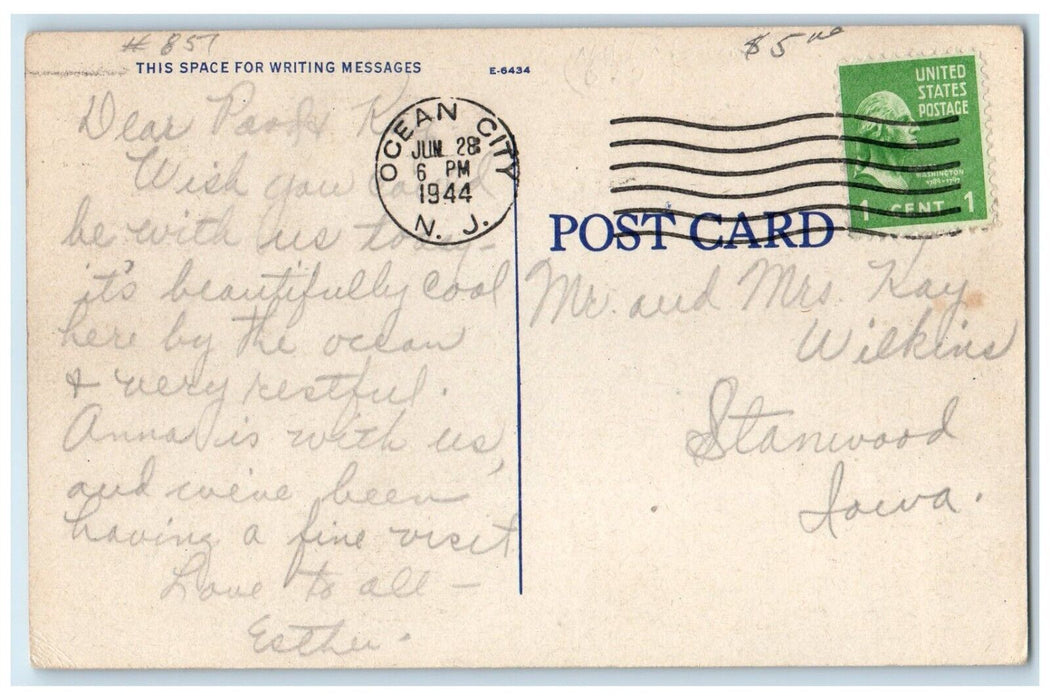 # 857
$5
THIS SPACE FOR WRITING MESSAGES
E-6434
Dear & Kay
Wish you could
be with us too –
it's beautifully cool
here by the ocean
& very restful.
Anna is with us,
and we've been
having a fine visit
Love to all –
Esther.
OCEAN CITY
JUN 28
6 PM
1944
N. J.
UNITED
STATES
POSTAGE
WASHINGTON
1789-1797
1 CENT 1
POST CARD
Mr. and Mrs. Kay
Wilkins
Stanwood
Iowa.